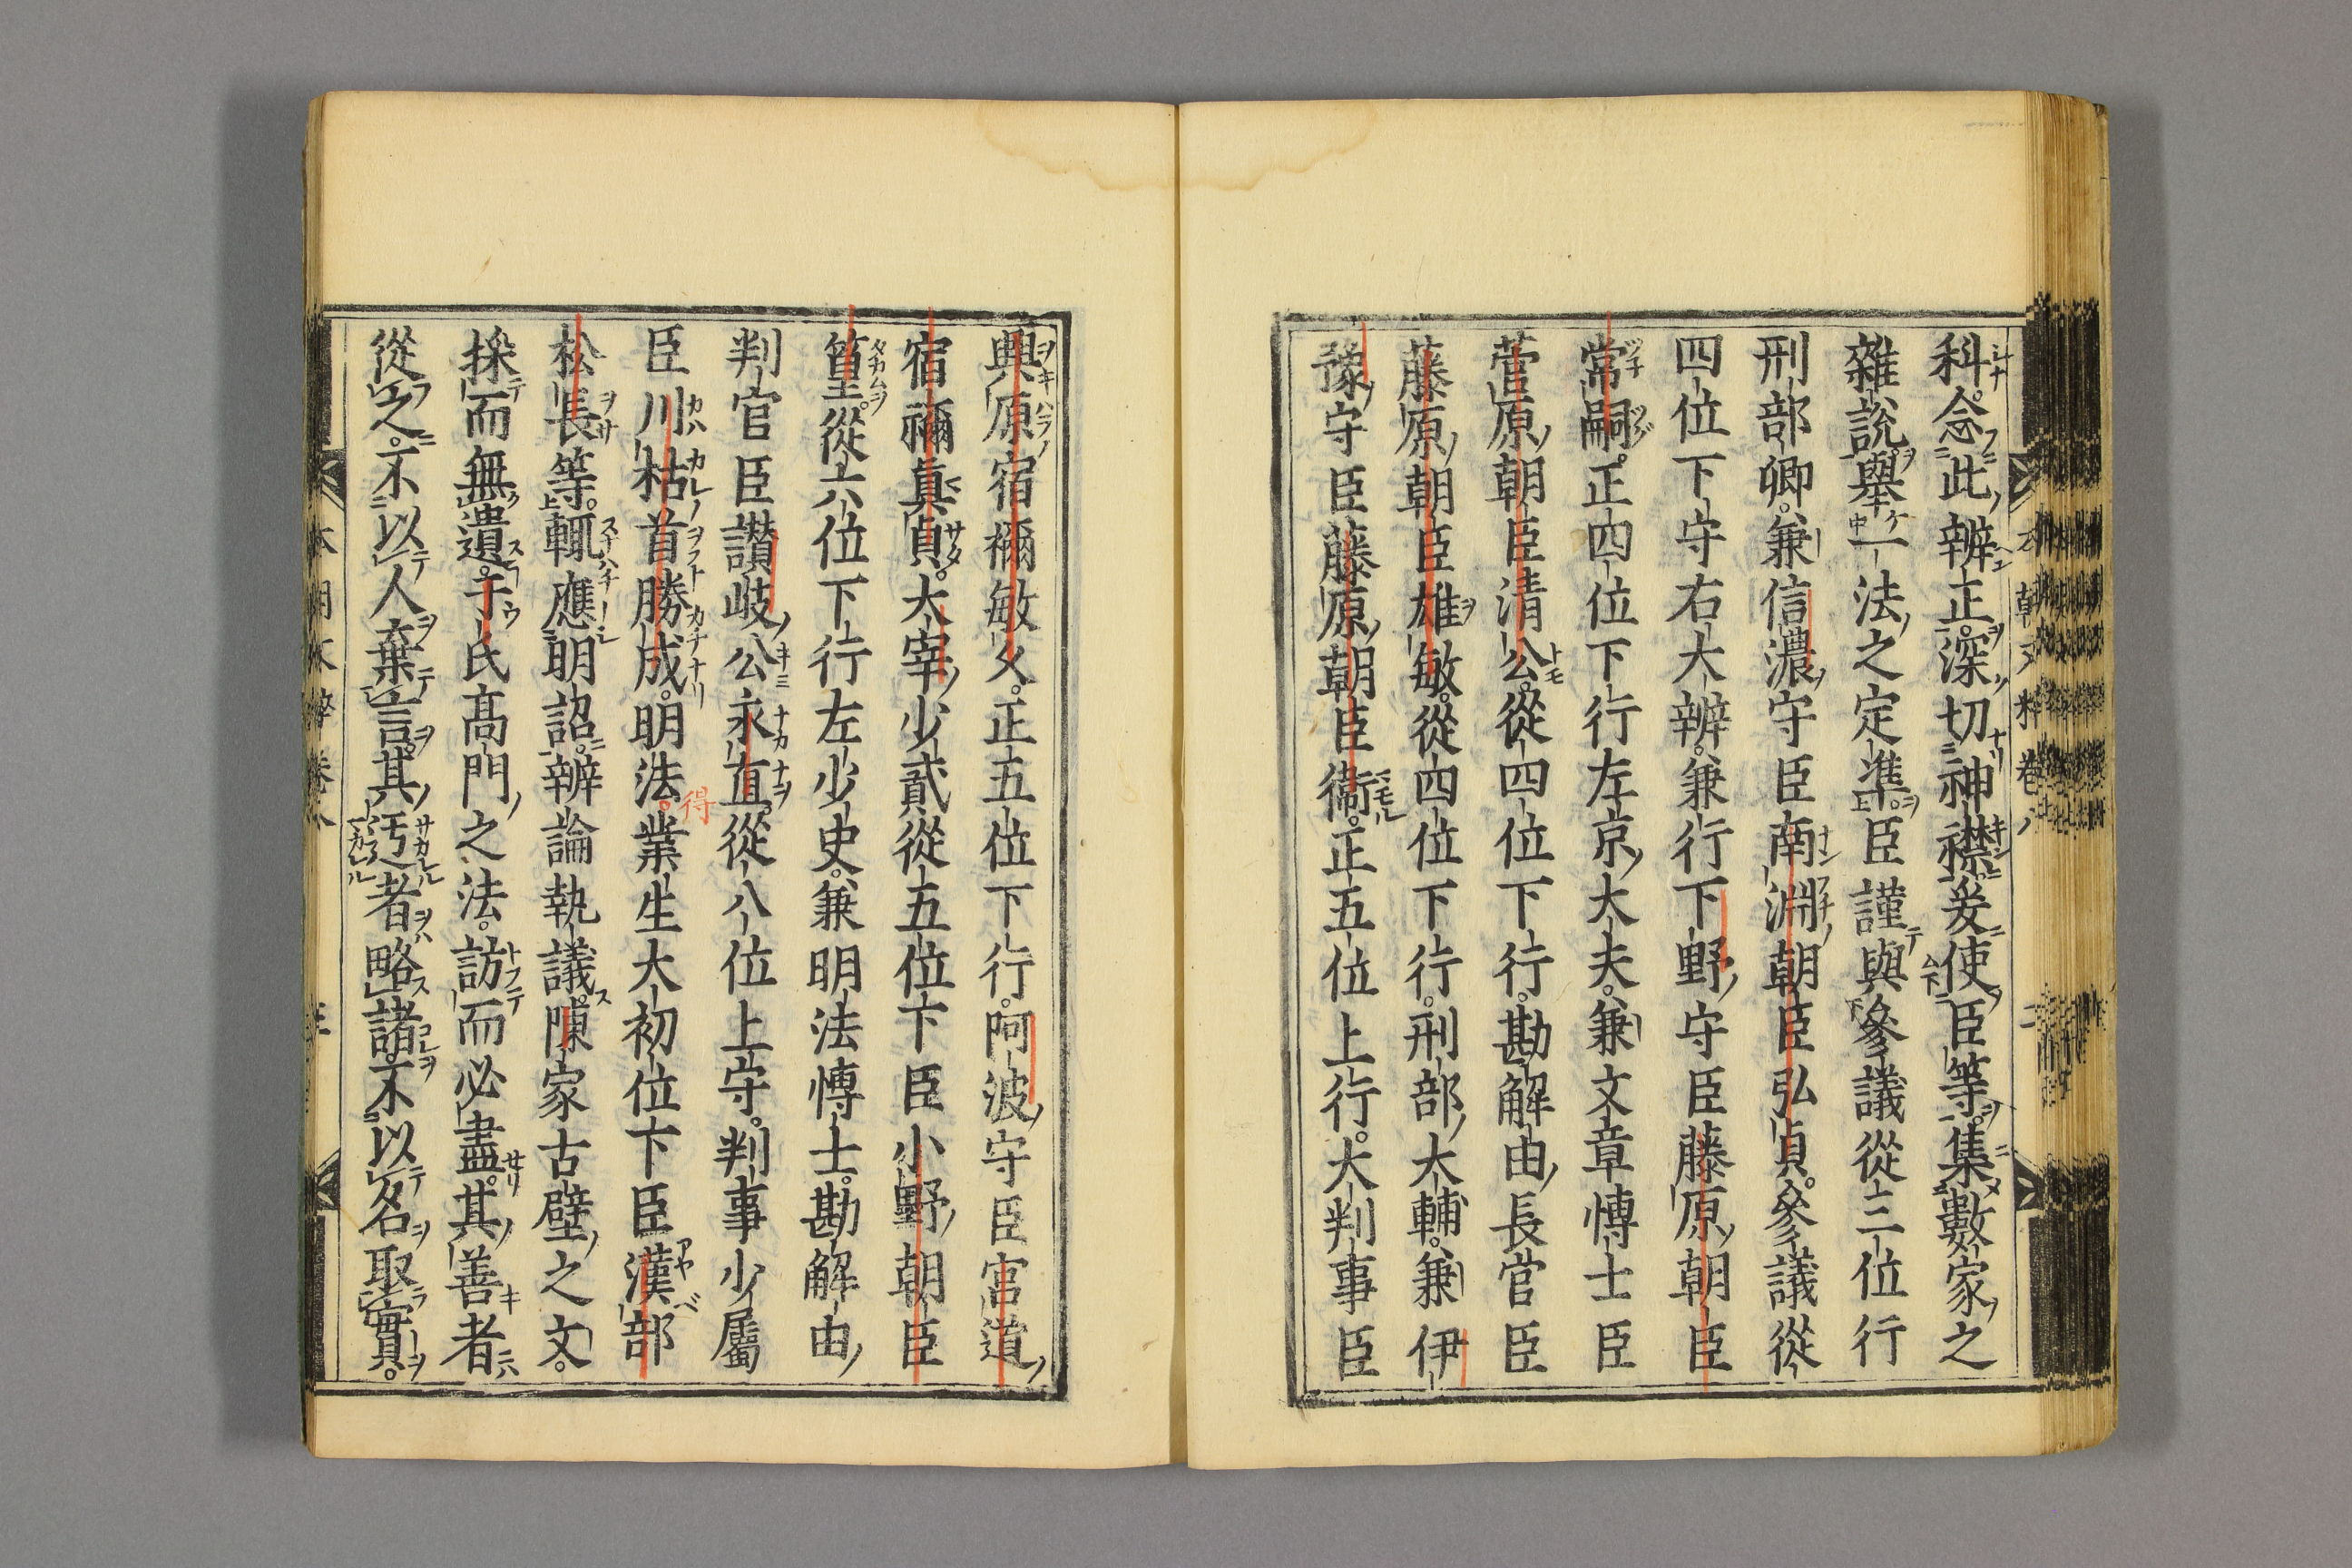 科念此辨正深切神襟爰使臣等集數家之
雜說擧一法之定準臣謹與參議從三位行
刑部卿兼信濃守臣南淵朝臣弘貞參議從
四位下守右大辨兼行下野守臣藤原朝臣
常嗣正四位下行左京大夫兼文章博士臣
菅原朝臣清公從四位下行勘解由長官臣
藤原朝臣雄敏從四位下行刑部大輔兼伊
豫守臣藤原朝臣衞正五位上行大判事臣
興原宿禰敏久正五位下行阿波守臣宮道
宿禰眞貞大宰少貳從五位下臣小野朝臣
篁從六位下行左少史兼明法博士勘解由
判官臣讃岐公永直從八位上守判事少屬
臣川枯首勝成明法得業生大初位下臣漢部
松長等輒應明詔辨論執議陳家古壁之文
採而無遺于氏高門之法訪而必盡其善者
從之不以人棄言其迃者略諸不以名取實
本朝文粹卷八
二